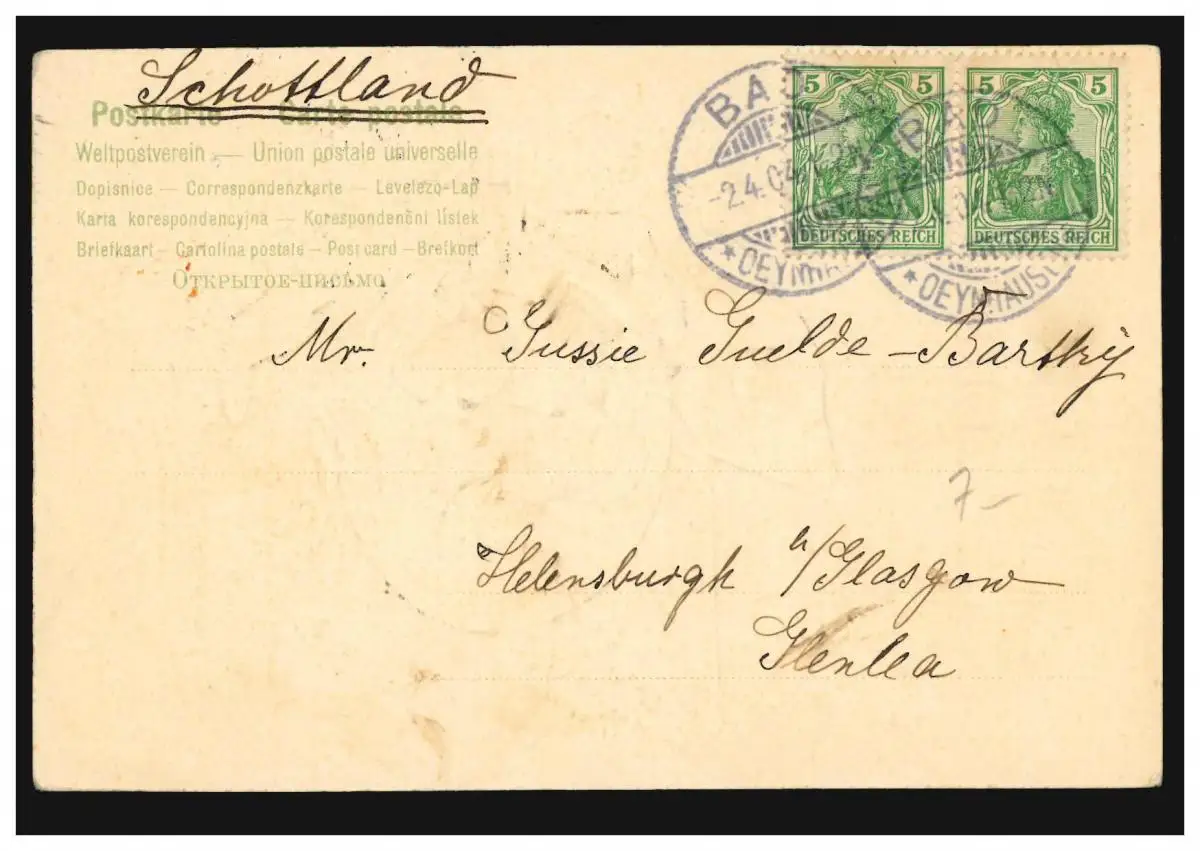 Schottland
Postkarte Carte postale
Weltpostverein — Union postale universelle
Dopisnice — Correspondenzkarte — Levelezö-Lap
Karta korespondencyjna — Korespondenčni listek
Briefkaart — Cartolina postale — Post card — Brefkort
Открытое-письмо
5 5
5 5
DEUTSCHES REICH
DEUTSCHES REICH
BAD
-2.4.04.
* OEYNHA
BAD
* OEYNHAUSEN
Mr. Gussie Guelde-Bartky
7-
Helensburgh n/Glasgow
Glenlea